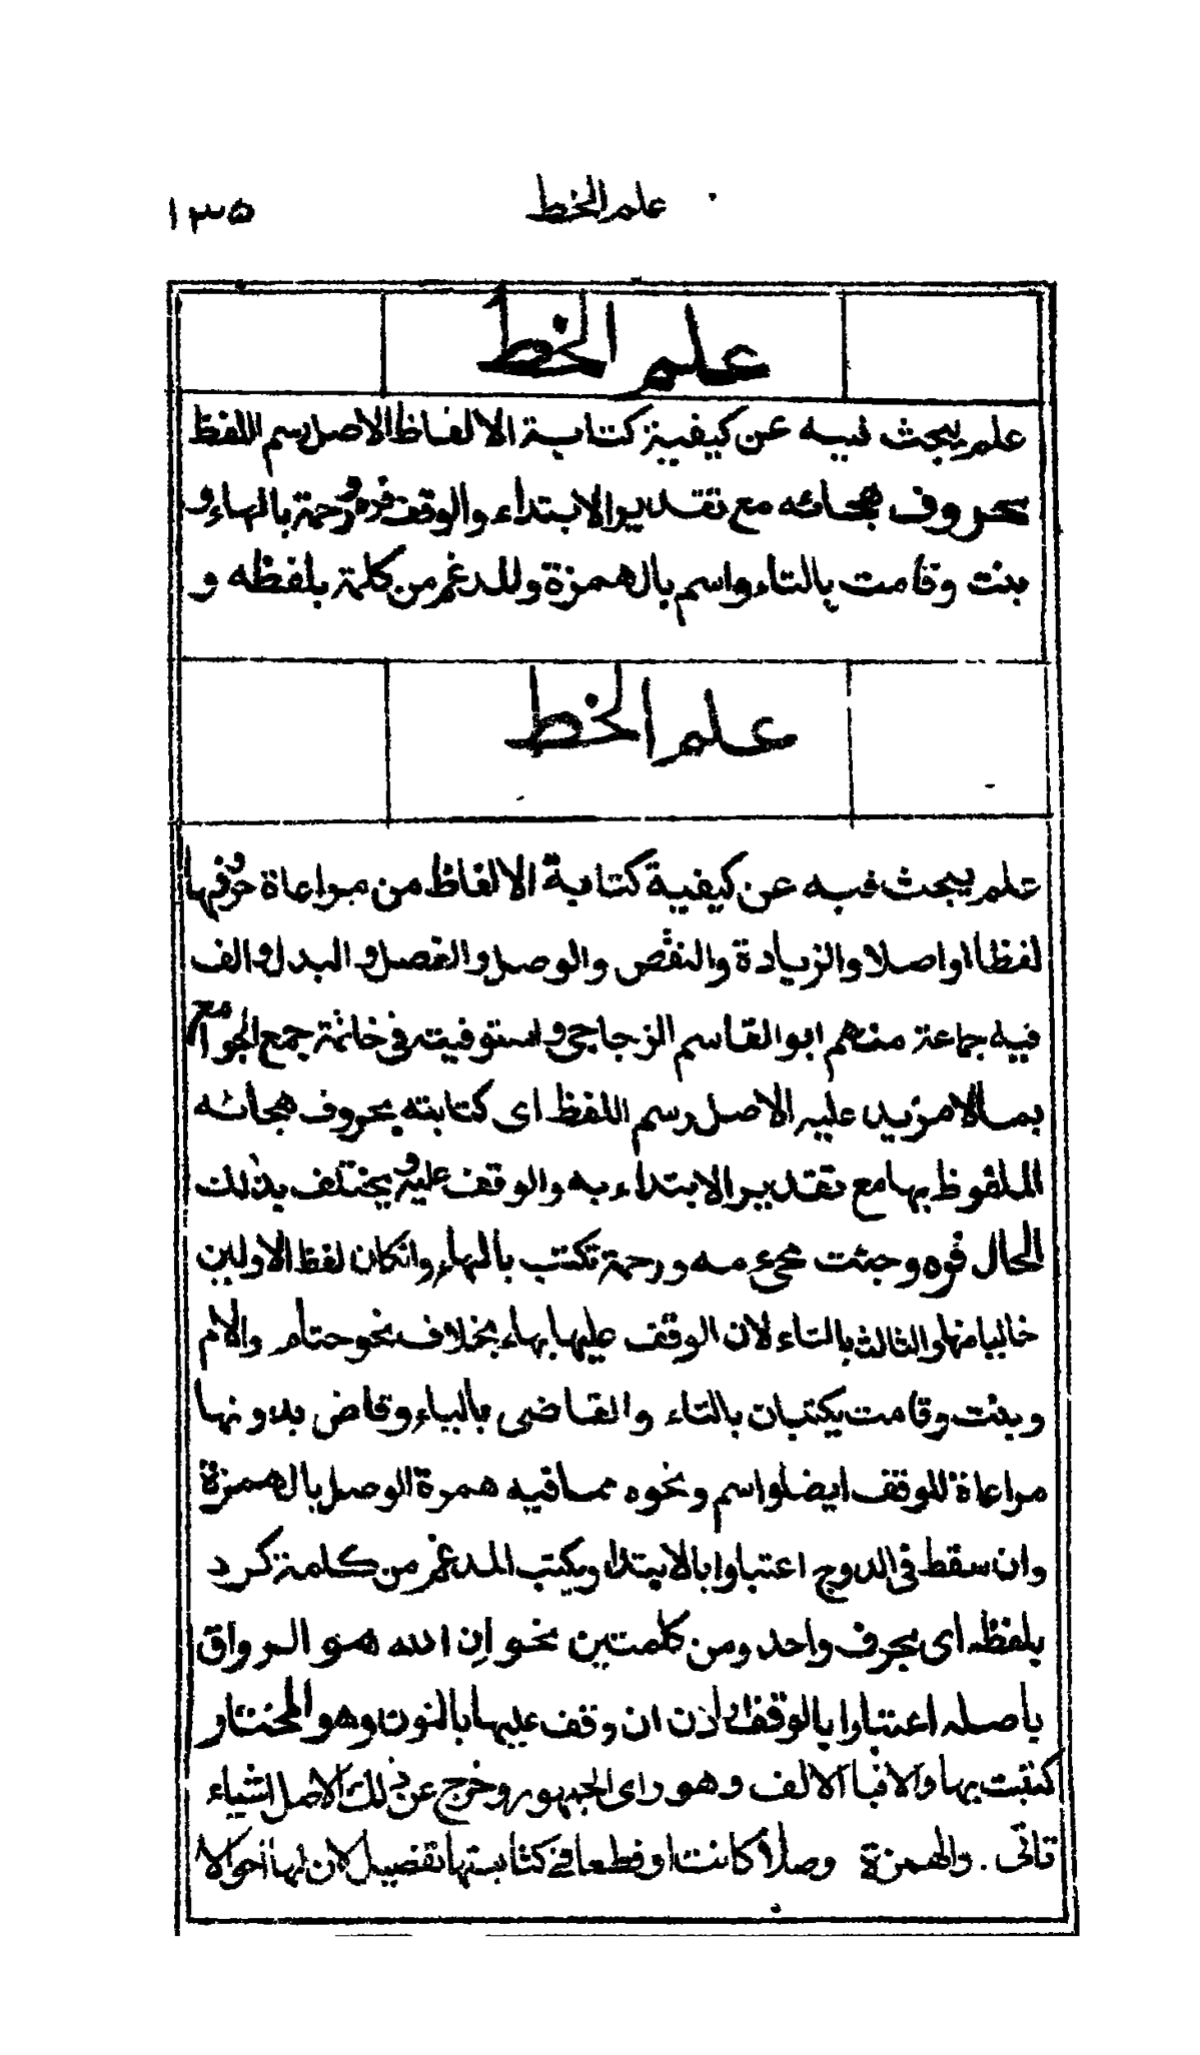 علم الخط
١٣٥
علم الخط
علم يبحث فيه عن كيفية كتابة الالفاظ الاصل رسم اللفظ
بحروف هجائه مع تقدير الابتداء والوقف فره ورحمة بالهاء و
بنت وقامت بالتاء واسم بالهمزة والمدغم من كلمة بلفظه و
علم الخط
علم يبحث فيه عن كيفية كتابة الالفاظ من مراعاة حروفها
لفظا او اصلا والزيادة والنقص والوصل والفصل والبدل والف
فيه جماعة منهم ابو القاسم الزجاجى واستوفيته فى خاتمة جمع الجوامع
بمالامزيد عليه الاصل رسم اللفظ اى كتابته بحروف هجائه
الملفوظ بها مع تقدير الابتداء به والوقف عليه ويختلف بذلك
الحال فره وجئت مجىء مه ورحمة تكتب بالهاء وانكان لفظ الاولين
خاليا منها والثالث بالتاء لان الوقف عليها بهاء بخلاف نحو حتام والام
وبنت وقامت يكتبان بالتاء والقاضى بالياء وقاض بدونها
مراعاة للوقف ايضا واسم ونحوه مما فيه همزة الوصل بالهمزة
وان سقط فى الدرج اعتبارا بالابتداء ويكتب المدغم من كلمة كرد
بلفظه اى بحرف واحد ومن كلمتين نحو ان الله هو الرزاق
باصله اعتبارا بالوقف اذن ان وقف عليها بالنون وهو المختار
كتبت بها والا فبا الالف وهو راى الجمهور وخرج عن ذلك الاصل اشياء
تاتى . والهمزة وصلا كانت او قطعا فى كتابتها تفصيل لان لها احوالا